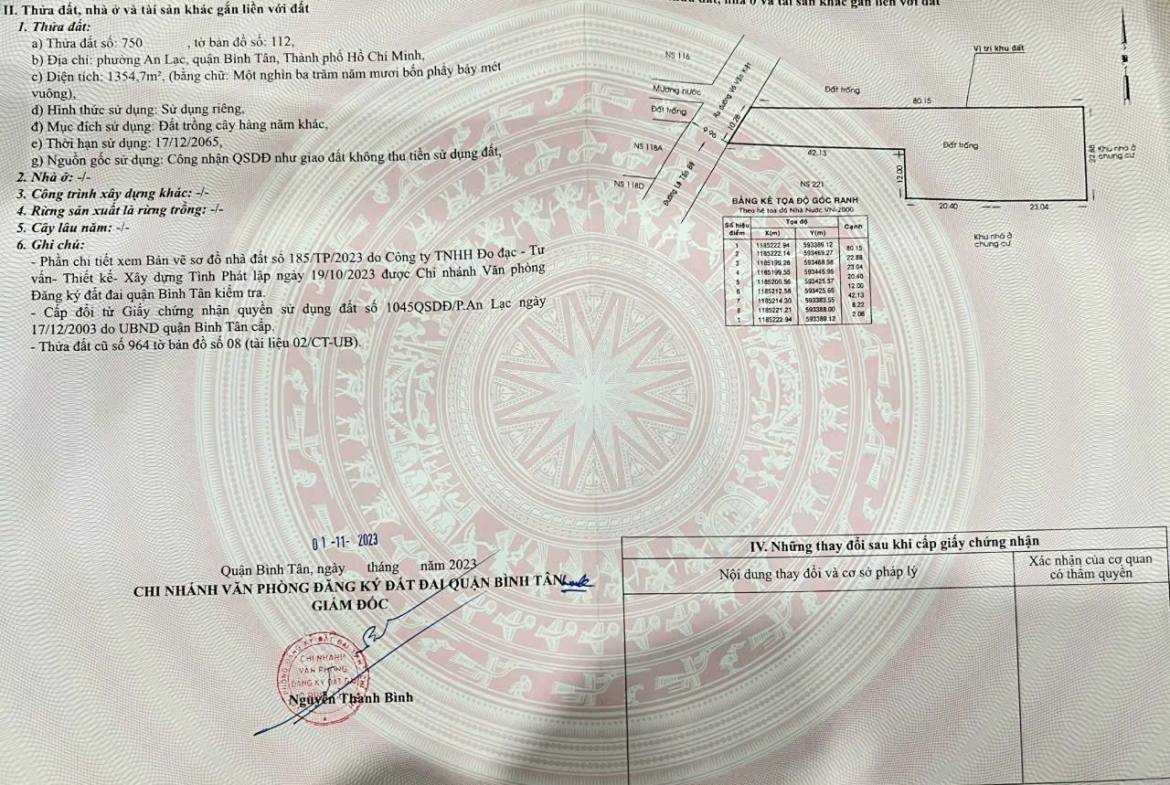 II. Thửa đất, nhà ở và tài sản khác gắn liền với đất
1. Thửa đất:
a) Thửa đất số: 750 , tờ bản đồ số: 112,
b) Địa chỉ: phường An Lạc, quận Bình Tân, Thành phố Hồ Chí Minh,
c) Diện tích: 1354,7m², (bằng chữ: Một nghìn ba trăm năm mươi bốn phẩy bảy mét
vuông),
d) Hình thức sử dụng: Sử dụng riêng,
đ) Mục đích sử dụng: Đất trồng cây hàng năm khác,
e) Thời hạn sử dụng: 17/12/2065,
g) Nguồn gốc sử dụng: Công nhận QSDĐ như giao đất không thu tiền sử dụng đất,
2. Nhà ở: -/-
3. Công trình xây dựng khác: -/-
4. Rừng sản xuất là rừng trồng: -/-
5. Cây lâu năm: -/-
6. Ghi chú:
- Phần chi tiết xem Bản vẽ sơ đồ nhà đất số 185/TP/2023 do Công ty TNHH Đo đạc - Tư
vấn- Thiết kế- Xây dựng Tình Phát lập ngày 19/10/2023 được Chi nhánh Văn phòng
Đăng ký đất đai quận Bình Tân kiểm tra.
- Cấp đổi từ Giấy chứng nhận quyền sử dụng đất số 1045QSDĐ/P.An Lạc ngày
17/12/2003 do UBND quận Bình Tân cấp.
- Thửa đất cũ số 964 tờ bản đồ số 08 (tài liệu 02/CT-UB).
01-11- 2023
Quận Bình Tân, ngày tháng năm 2023
CHI NHÁNH VĂN PHÒNG ĐĂNG KÝ ĐẤT ĐAI QUẬN BÌNH TÂN
GIÁM ĐỐC
CHI NHÁNH
VĂN PHÒNG
ĐĂNG KÝ ĐẤT ĐAI
Nguyễn Thanh Bình
NS 116
Mương nước
Đất trống
NS 118A
NS 118D
Ra đường Võ Văn Kiệt
Đường Lê Tấn Bê
10.28
Vị trí khu đất
Đất trống
80.15
Đất trống
42.13
12.00
22.88
Khu nhà ở
chung cư
20.40
23.04
NS 221
Khu nhà ở
chung cư
BẢNG KÊ TỌA ĐỘ GÓC RANH
Theo hệ tọa độ Nhà Nước VN-2000
Số hiệu điểm Tọa độ Cạnh
X(m) Y(m)
1 1185222.94 593389.12
80.15
2 1185222.14 593469.27
22.88
3 1185199.26 593468.98
23.04
4 1185199.55 593445.95
20.40
5 1185200.56 593425.57
12.00
6 1185212.56 593425.66
42.13
7 1185214.30 593383.55
8.22
8 1185221.21 593388.00
2.06
1 1185222.94 593389.12
IV. Những thay đổi sau khi cấp giấy chứng nhận
Nội dung thay đổi và cơ sở pháp lý
Xác nhận của cơ quan
có thẩm quyền